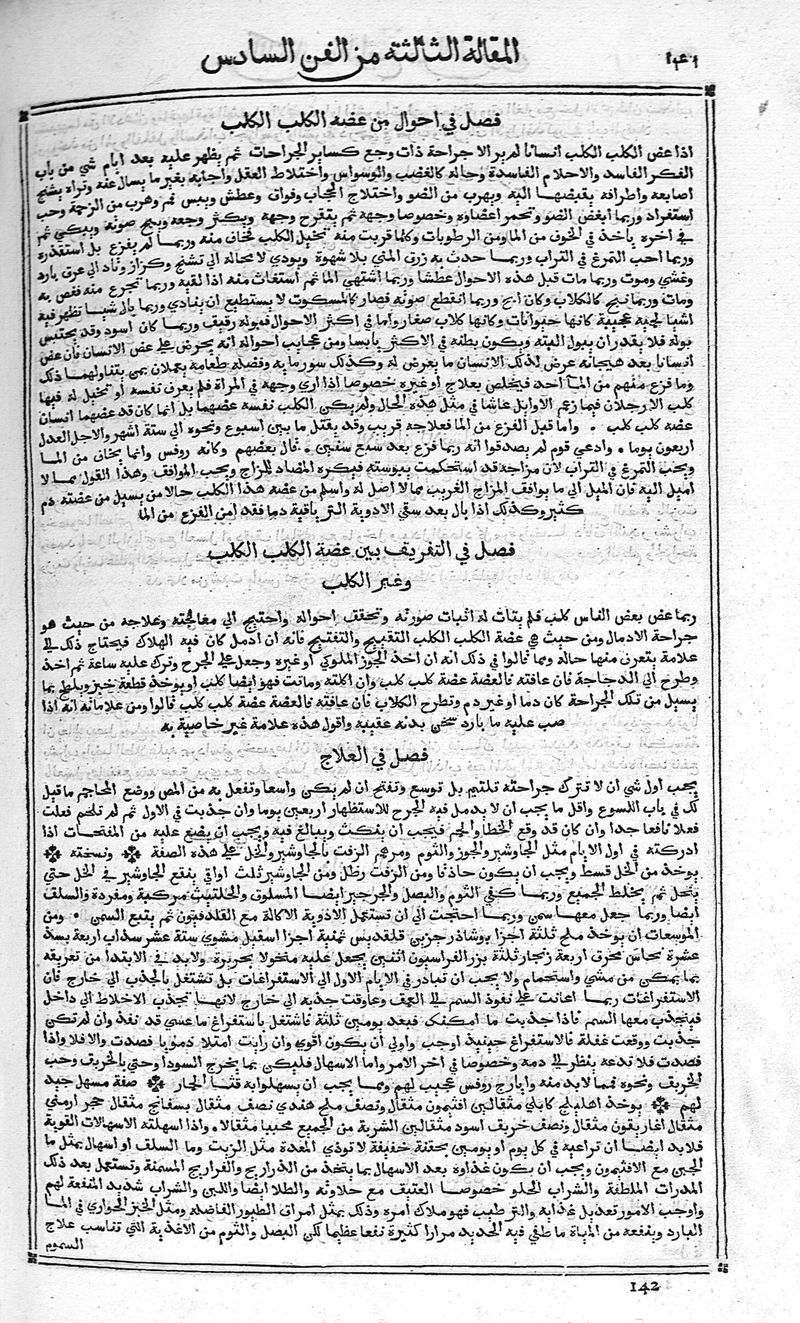 ١٤١
المقالة الثالثة من الفن السادس
فصل في احوال من عضه الكلب الكلب
اذا عض الكلب الكلب انسانا لم ير الا جراحة ذات وجع كساير الجراحات ثم يظهر عليه بعد ايام شي من باب
الفكر الفاسد والاحلام الفاسدة وحالة كالغضب والوسواس واختلاط العقل واجابة بغير ما يسال عنه وتراه يشنج
اصابعه واطرافه يقبضها اليه ويهرب من الضو واختلاج الحجاب وفواق وعطش ويبس فم وهرب من الزحمة وحب
استفراد وربما ابغض الضو وتحمر اعضاوه وخصوصا وجهه ثم يتقرح وجهه ويكثر وجعه ويبح صوته ويبكي ثم
في اخره ياخذ في الخوف من الما ومن الرطوبات وكلما قربت منه تخيل الكلب فخاف منه وربما لم يفزع بل استقذره
وربما احب التمرغ في التراب وربما حدث به زرق المني بلا شهوة ويودي لا محالة الي تشنج وكزاز وتاد الي عرق بارد
وغشي وموت وربما مات قبل هذه الاحوال عطشا وربما اشتهي الما ثم استغاث منه اذا لقيه وربما تجرع منه فغص به
ومات وربما نبح كالكلاب وكان ابح وربما انقطع صوته فصار كالمسكوت لا يستطيع ان ينادي وربما بال شيا تظهر فيه
اشيا لحمية عجيبة كانها حيوانات وكانها كلاب صغار واما في اكثر الاحوال فبوله رقيق وربما كان اسود وقد يحتبس
بوله فلا يقدر ان يبول البتة ويكون بطنه في الاكثر يابسا ومن عجايب احواله انه يحرص علي عض الانسان فان عض
انسانا بعد هيجانه عرض لذلك الانسان ما يعرض له وكذلك سور مايه وفضلة طعامه يعملان بمن يتناولهما ذلك
وما فزع منهم من الما احد فيخلص بعلاج او غيره خصوصا اذا اري وجهه في المراة فلم يعرف نفسه او تخيل له فيها
كلب الا رجلان فيما زعم الاوايل عاشا في مثل هذه الحال ولم يكن الكلب نفسه عضهما بل انما كان قد عضهما انسان
عضه كلب كلب ٠ واما قبل الفزع من الما فعلاجه قريب وقد يقتل ما بين اسبوع ونحوه الي ستة اشهر والاجل العدل
اربعون يوما ٠ وادعي قوم لم يصدقوا انه ربما فزع بعد سبع سنين ٠ قال بعضهم وكانه روفس وانما يخاف من الما
ويحب التمرغ في التراب لان مزاجه قد استحكمت يبوسته فيكره المضاد للمزاج ويحب الموافق وهذا القول مما لا
اميل اليه فان الميل الي ما يوافق المزاج الغريب مما لا اصل له واسلم من عضه هذا الكلب حالا من يسيل من عضته دم
كثير وكذلك اذا بال بعد سقي الادوية الترياقية دما فقد امن الفزع من الما
فصل في التفريق بين عضة الكلب الكلب
وغير الكلب
ربما عض بعض الناس كلب فلم يتات له اثبات صورته وتحقق احواله واحتيج الي معالجته وعلاجه من حيث هو
جراحة الادمال ومن حيث هي عضة الكلب الكلب التقييح والتفتيح فانه ان ادمل كان فيه الهلاك فيحتاج ذلك الي
علامة يتعرف منها حاله ومما قالوا في ذلك انه ان اخذ الجوز الملوكي او غيره وجعل علي الجرح وترك عليه ساعة ثم اخذ
وطرح الي الدجاجة فان عافته فالعضة عضة كلب كلب وان اكلته وماتت فهو ايضا كلب او يوخذ قطعة خبز ويلطخ بما
يسيل من تلك الجراحة كان دما او غير دم وتطرح الكلاب فان عافته فالعضة عضة كلب كلب قالوا ومن علاماته انه اذا
صب عليه ما بارد سخن بدنه عقيبه واقول هذه علامة غير خاصية به
فصل في العلاج
يجب اول شي ان لا تترك جراحته تلتيم بل توسع وتفتح ان لم يكن واسعا وتفعل به من المص ووضع المحاجم ما قيل
لك في باب اللسوع واقل ما يجب ان لا يدمل فيه الجرح للاستظهار اربعين يوما وان جذبت في الاول ثم لم تلحم فعلت
فعلا نافعا جدا وان كان قد وقع الخطا والحم فيجب ان ينكث ويبالغ فيه ويجب ان يضع عليه من المفتحات اذا
ادركته في اول الايام مثل الجاوشير والجوز والثوم ومرهم الزفت بالجاوشير والخل علي هذه الصفة ونسخته
يوخذ من الخل قسط ويجب ان يكون حاذقا ومن الزفت رطل ومن الجاوشير ثلث اواق ينقع الجاوشير في الخل حتي
ينحل ثم يخلط الجميع وربما كفي الثوم والبصل والجرجير ايضا المسلوق والحلتيت مركبة ومفردة والسلق
ايضا وربما جعل معها سمن وربما احتجت الي ان تستعمل الادوية الاكالة مع القلدفيون ثم يتبع السمن ٠ ومن
الموسعات ان يوخذ ملح ثلثة اجزا نوشاذر جزين قلقديس ثمنية اجزا اسقيل مشوي ستة عشر سذاب اربعة بسد
عشرة نحاس محرق اربعة زنجار ثلثة بزر الفراسيون اثنين يجعل عليه منخولا بحريرة ولابد في الابتدا من تعريقه
بما يمكن من مشي واستحمام ولا يجب ان تبادر في الايام الاول الي الاستفراغات بل تشتغل بالجذب الي خارج فان
الاستفراغات ربما اعانت علي نفوذ السم في العمق وعاوقت جذبه الي خارج لانها تجذب الاخلاط الي داخل
فينجذب معها السم فاذا جذبت ما امكنك فبعد يومين ثلثة فاشتغل باستفراغ ما عسي قد نفذ وان لم تكن
جذبت ووقعت غفلة فالاستفراغ حينيذ اوجب واولي ان يكون اقوي وان رايت امتلا دمويا فصدت والا فلا واذا
فصدت فلا تدعه ينظر الي دمه وخصوصا في اخر الامر واما الاسهال فليكن بما يخرج السودا وحتي بالخربق وحب
الخربق ونحوه فما لابد منه وايارج روفس عجيب لهم ومما يجب ان يسهلوا به قثا الحمار صفة مسهل جيد
لهم يوخذ اهليلج كابلي مثقالين افتيمون مثقال ونصف ملح هندي نصف مثقال بسفايج مثقال حجر ارمني
مثقال اغاريقون مثقال ونصف خربق اسود مثقالين الشربة من الجميع محببا مثقالا ٠ واذا اسهلته الاسهالات القوية
فلابد ايضا ان تراعيه في كل يوم او يومين بحقنة خفيفة لا توذي المعدة مثل الزيت وما السلق او اسهال بمثل ما
الجبن مع الافتيمون ويجب ان يكون غذاوه بعد الاسهال بما يتخذ من الدراريج والفراريج المسمنة وتستعمل بعد ذلك
المدرات الملطفة والشراب الحلو خصوصا العتيق مع حلاوته والطلا ايضا واللبن والشراب شديد المنفعة لهم
واوجب الامور تعديل غذايه والترطيب فهو ملاك امره وذلك بمثل امراق الطيور الفاضلة ومثل الخبز الحواري في الما
البارد وينفعه من المياة ما طفي فيه الحديد مرارا كثيرة نفعا عظيما لكن البصل والثوم من الاغذية التي تناسب علاج
السموم
142